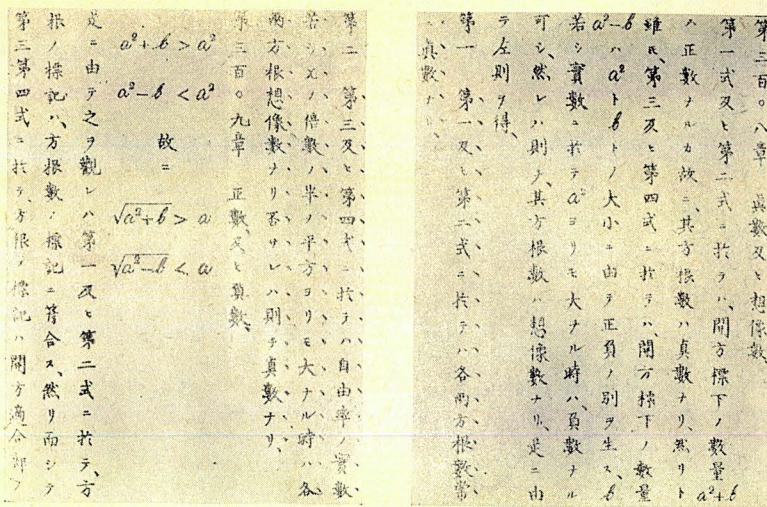 第三百〇八章　眞數及ヒ想像數、
第一式及ヒ第二式ニ於テハ、開方標下ノ數量 a²+b
ハ正數ナルカ故ニ、其方根數ハ真數ナリ、然リト
雖𪜈、第三及ヒ第四式ニ於テハ、開方標下ノ數量
a²−b ハ a² ト b トノ大小ニ由テ正負ノ別ヲ生ス、b
若シ實數ニ於テ a² ヨリモ大ナル時ハ、負數ナル
可シ、然レハ則チ、其方根數ハ想像數ナリ、是ニ由
テ左則ヲ得、
第一　第一及ヒ第二式ニ於テハ各兩方根數常
ニ眞數ナリ、
第二　第三及ヒ第四式ニ於テハ自由率ノ實數
若シ元ノ倍數ノ半ノ平方ヨリモ大ナル時ハ各
兩方根想像數ナリ否サレハ則チ真數ナリ、
第三百〇九章　正數及ヒ負數、
a²+b > a²
a²−b < a²
故ニ
√a²+b > a
√a²−b < a
是ニ由テ之ヲ觀レハ第一及ヒ第二式ニ於テ、方
根ノ標記ハ、方根數ノ標記ニ符合ス、然リ而シテ
第三第四式ニ於テ、方根ノ標記ハ開方適合部ノ